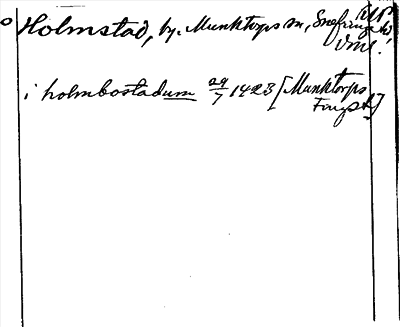 Holmstad, by. Munktorps sn, Snefringe hd
Vml.
i holmbostadum 29/7 1423 [Munktorps
Tingsl.]